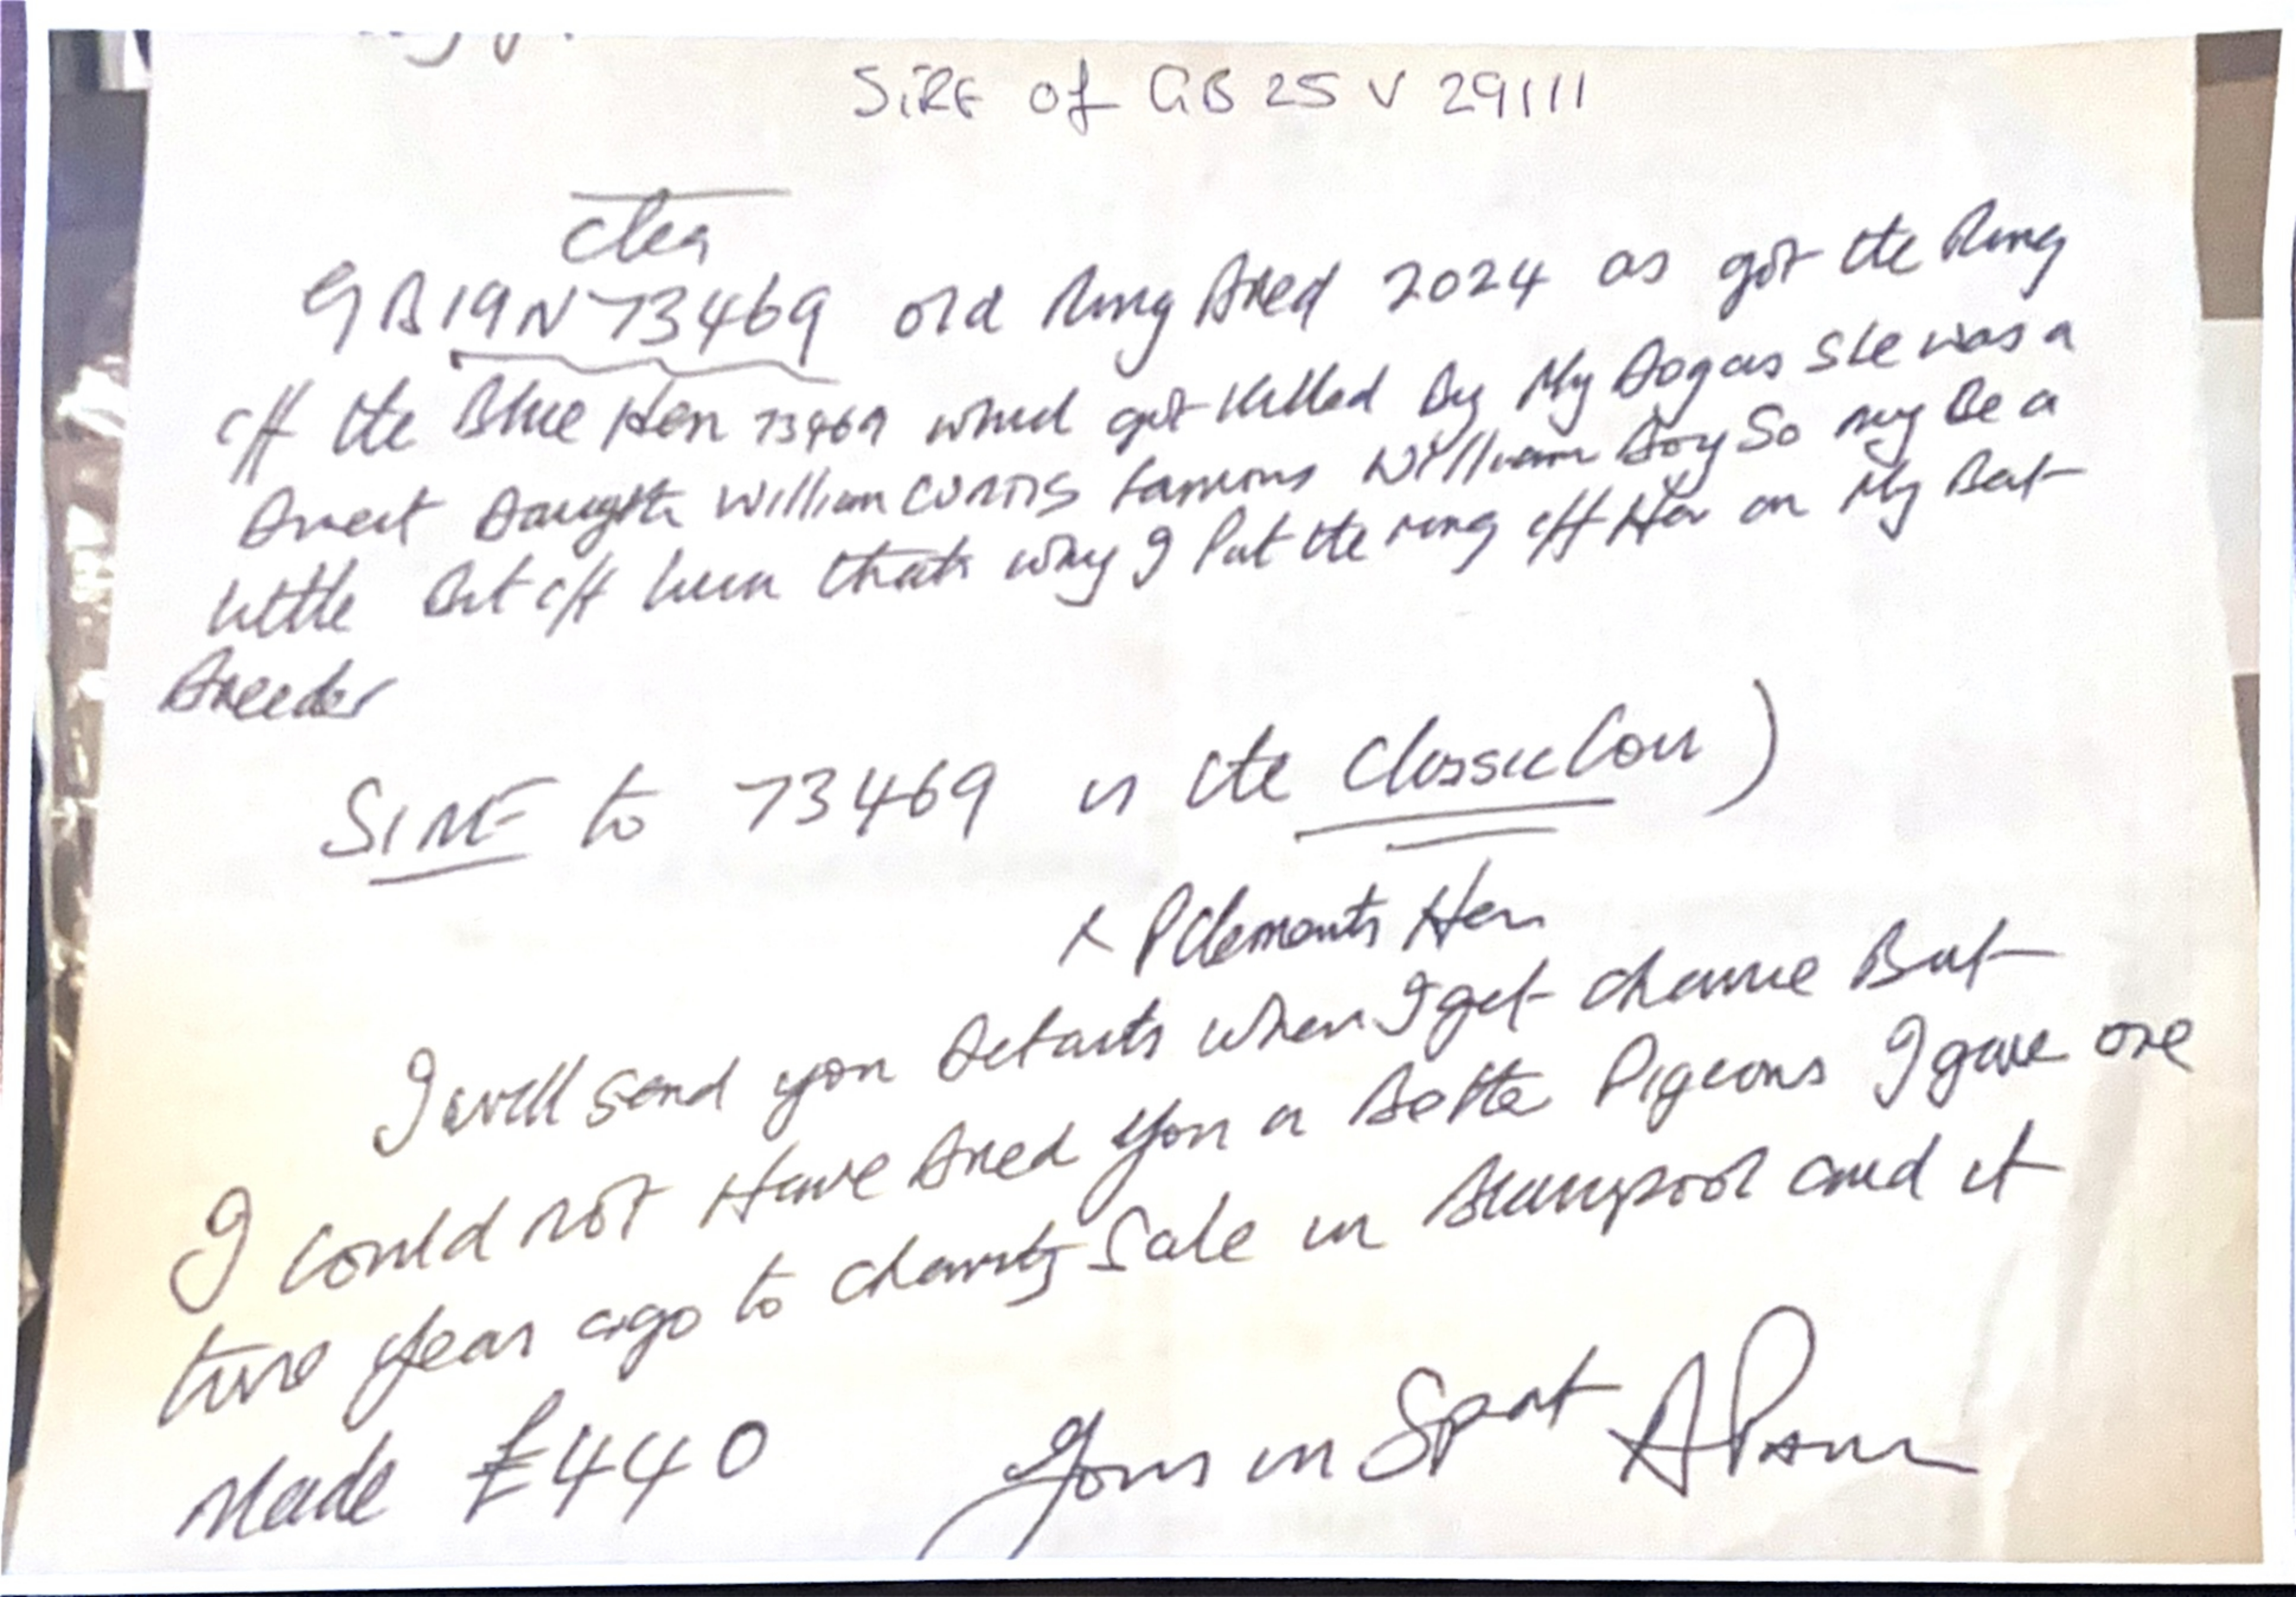 SiRE of GB 25 V 29111
GB19N73469 old Ring Bred 2024 as got the Ring
off the Blue Hen 73469 which got Killed By My Dog as She was a
Direct Daughter William CURTIS famous William Boy So may Be a
little Bit off him thats why I Put the ring off Her on My Best
Breeder
SIRE to 73469 is the Classic Con )
x P Clements Hen
I will send you Details when I get chance But
I could not Have Bred you a Better Pigeons I gave one
two year ago to charity Sale in and it
Made £440 Yours in Sport A